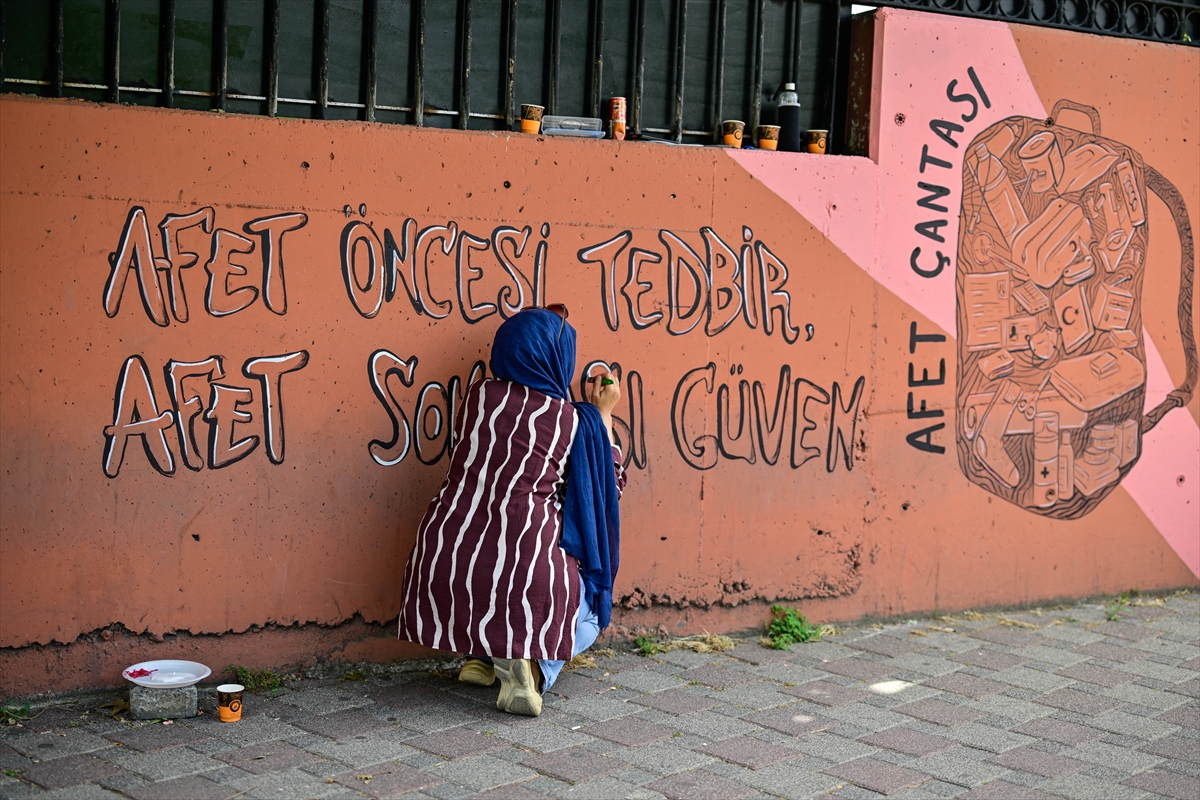 AFET ÖNCESİ TEDBİR,
AFET GÜVEN
AFET ÇANTASI